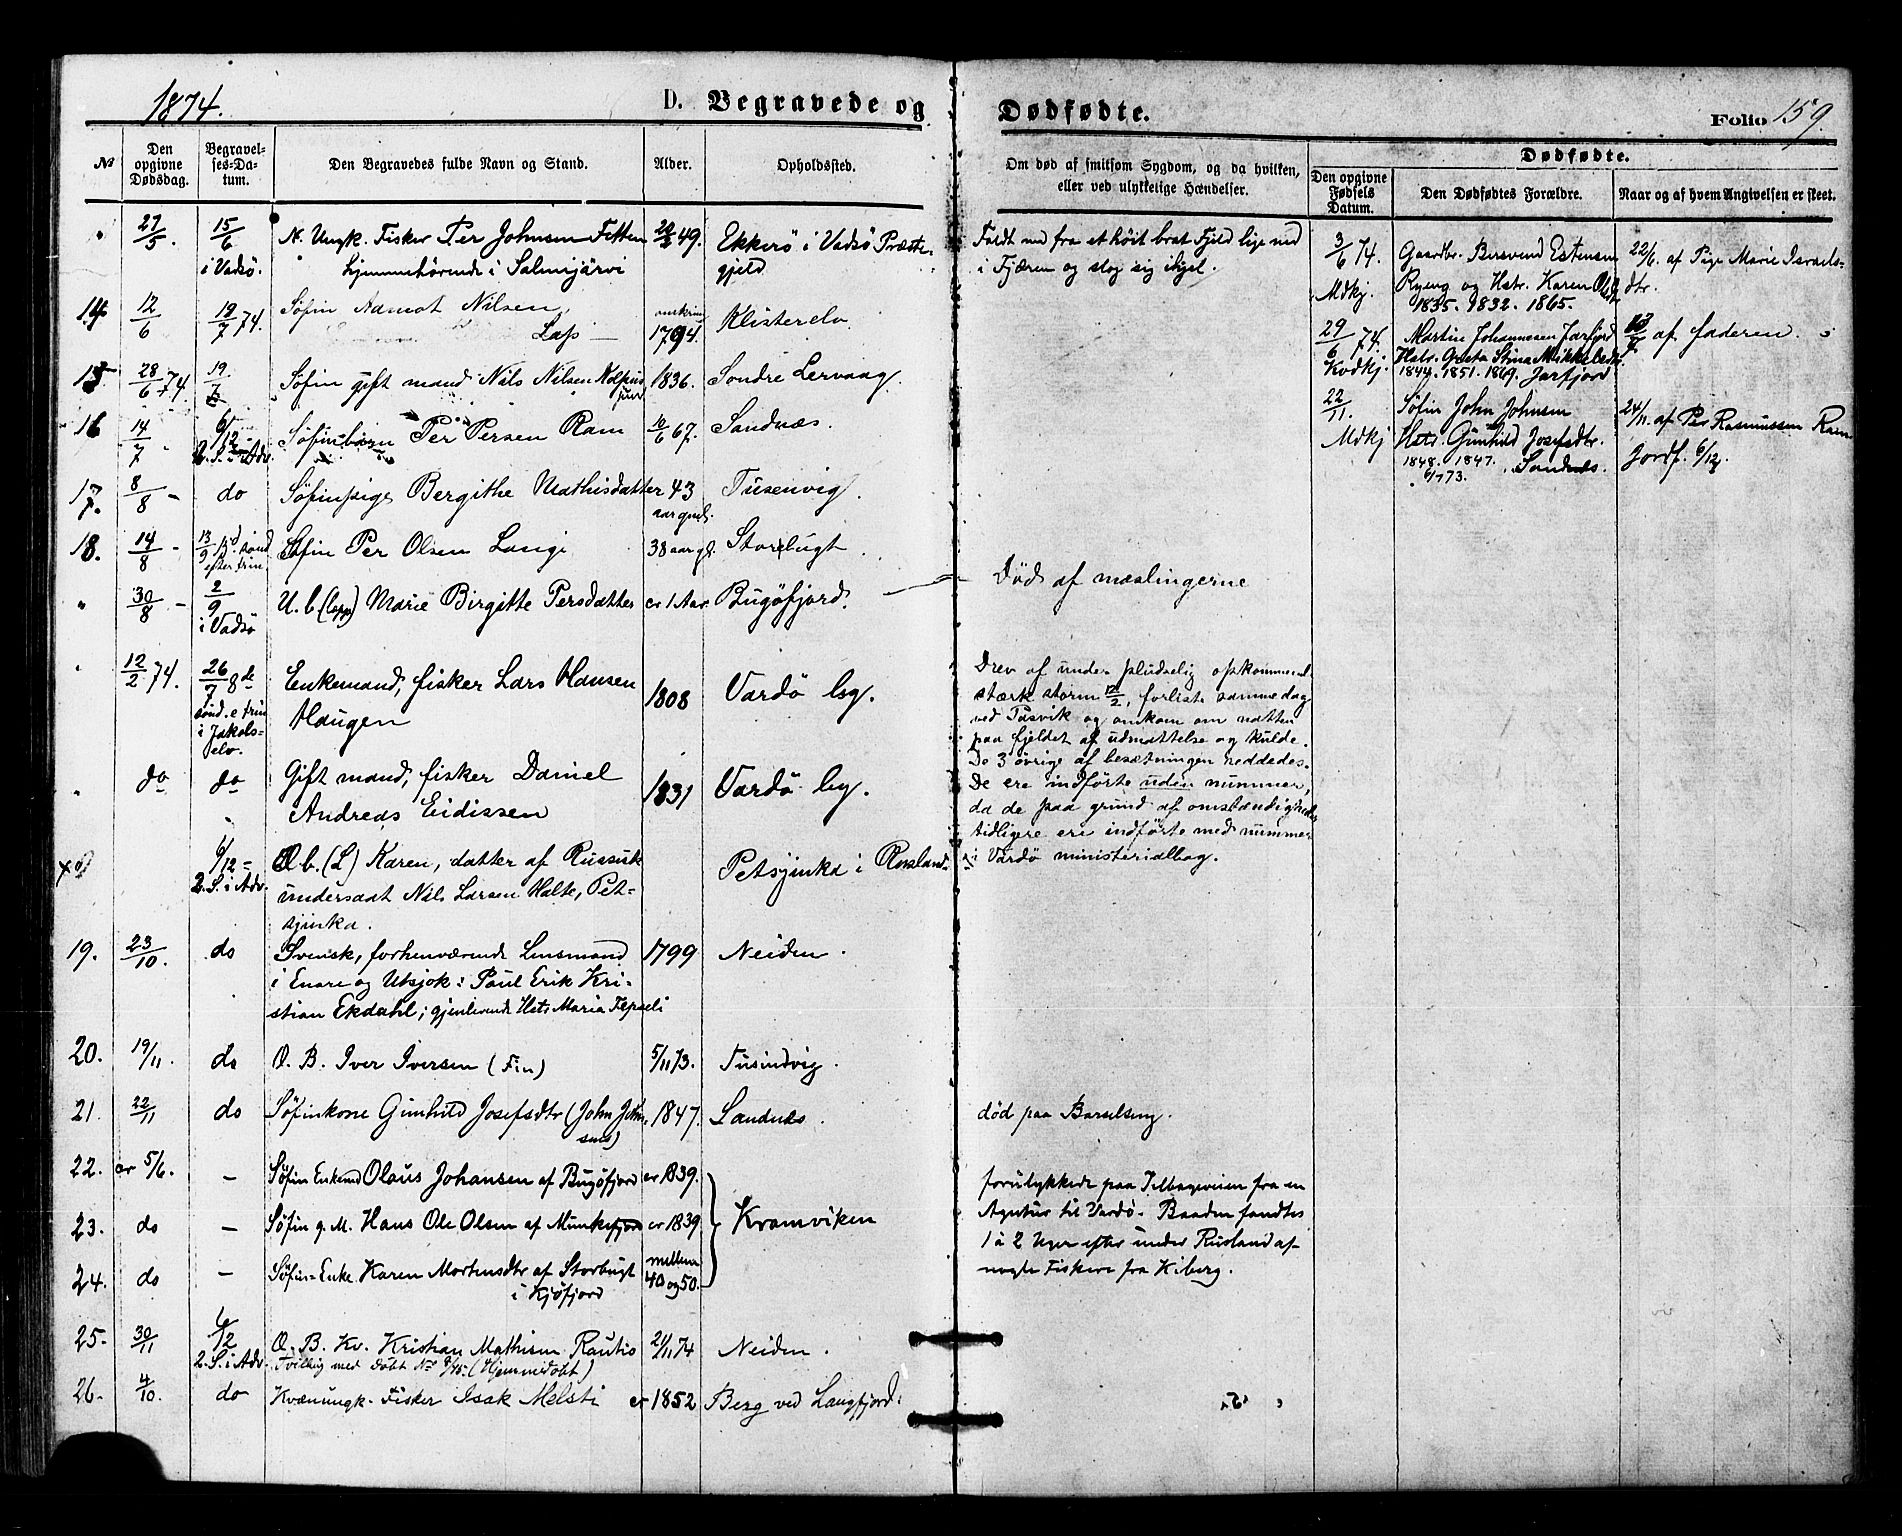 1874.
D. Begravede og
Dødfødte.
Folio 159.
№
Den opgivne Dødsdag.
Begravelses-Datum.
Den Begravedes fulde Navn og Stand.
Alder.
Opholdssted.
Om død af smitsom Sygdom, og da hvilken,
eller ved ulykkelige Hændelser.
Dødfødte.
Den opgivne Fødsels Datum.
Den Dødfødtes Forældre.
Naar og af hvem Angivelsen er skeet.
" 27/5. 15/6 N. Ungk. Fisker Per Johnsen Fetten 49. Ekkerö i Vadsö Præste-
i Vadsö. hjemmehörende i Salmijärvi gjeld
Faldt ned fra et höit brat Fjeld lige ned
i Fjæren og slog sig ihjel.
14 12/6 19/7 74. Söfin Aamot Nilsen omkring Klisterelv
Lap — 1794.
15 28/6 74. 19/7 Söfin gift mand Nils Nilsen 1836. Sondre Lervaag.
16 14/7 6/12 Söfinbarn Per Persen Ram 10/6 67. Sandnæs.
2. S. i Adv.
17. 8/8 - do Söfinpige Bergithe Mathisdatter 43 Tusenvig.
aar gml.
18. 14/8 - 13/9 Söfin Per Olsen Langi 38 aar gl. Storbugt
efter trin
" 30/8 - 2/9 U. b (lapp) Marie Birgitte Persdatter er 1 Aar. Bugöfjord.
i Vadsö
Död af mæslingerne
" 12/2 74. 26/7 8de Enkemand, fisker Lars Hansen 1808 Vardö by.
sönd. e trin Haugen
i Jakobs-
elv.
" do do Gift mand, fisker Daniel 1831 Vardö by.
Andreas Eidissen
Drev af under pludselig opkommend
stærk storm 12/2, forliste samme dag
ved Pasvik og omkom om natten
paa fjeldet af udmattelse og kulde.
De 3 övrige af besætningen reddedes.
De ere indförte uden nummer,
da de paa grund af omstændigheder
tidligere ere indförte med nummer
i Vardö ministerialbog.
6/12 - b. (L) Karen, datter af Russisk Petsjinka i Rusland.
2. S. i Adv. undersaat Nils Larsen Halte, Pet-
sjinka.
19. 23/10. do Svensk, forhenværende Lensmand 1799 Neiden.
i Enare og Utsjok: Paul Erik Kri-
stian Ekdahl; gjenlevende Hstr Maria
20. 19/11. do O. B. Iver Iversen (Fin) 5/11 73. Tusindvig.
21. 22/11 do Söfinkone Gunhild Josefsdtr (John John- 1847. Sandnæs.
sens)
död paa Barselseng.
22. er 5/6. — Söfin Enkemd Olaus Johansen af Bugöfjord er 1839.
23. do — Söfin g. M. Hans Ole Olsen af Munkefjord er 1839. Kramviken
24. do — Söfin-Enke Karen Mortensdtr af Storbugt mellem
i Kjöfjord 40 og 50.
forulykkede paa Tilbageveien fra en
Agentur til Vardö. Baaden fandtes
1 à 2 Uger efter under Rusland af
nogle Fiskere fra Kiberg.
25. 30/11 6/12 O. B. Kv. Kristian Mathisen Rautio 21/11 74 Neiden.
2. S. i Adv. Tvilling med döbt No 9/45. (Hjemmedöbt)
26. 4/10. do Kvænungk. Fisker Isak Melsti er 1852 Berg ved Langfjord.
3/6 74. Gaardbr. Bersvend Estensen 22/6. af Pige Marie Israels-
Mdkj. Ryeng og Hstr. Karen Olsdtr dtr.
1835. 1832. 1865.
29/6 74. Martin Johannesen Jarfjord af faderen.
Kvdkj. Hstr. Greta Stina Mikkelsdtr
1844. 1851. 1869. Jarfjord
22/11. Söfin John Johnsen 24/11. af Per Rasmussen Ram
Mdkj Hstr. Gunhild Josefsdtr. Jordf. 6/12.
1848. 1847. Sandnæs.
6/7 73.